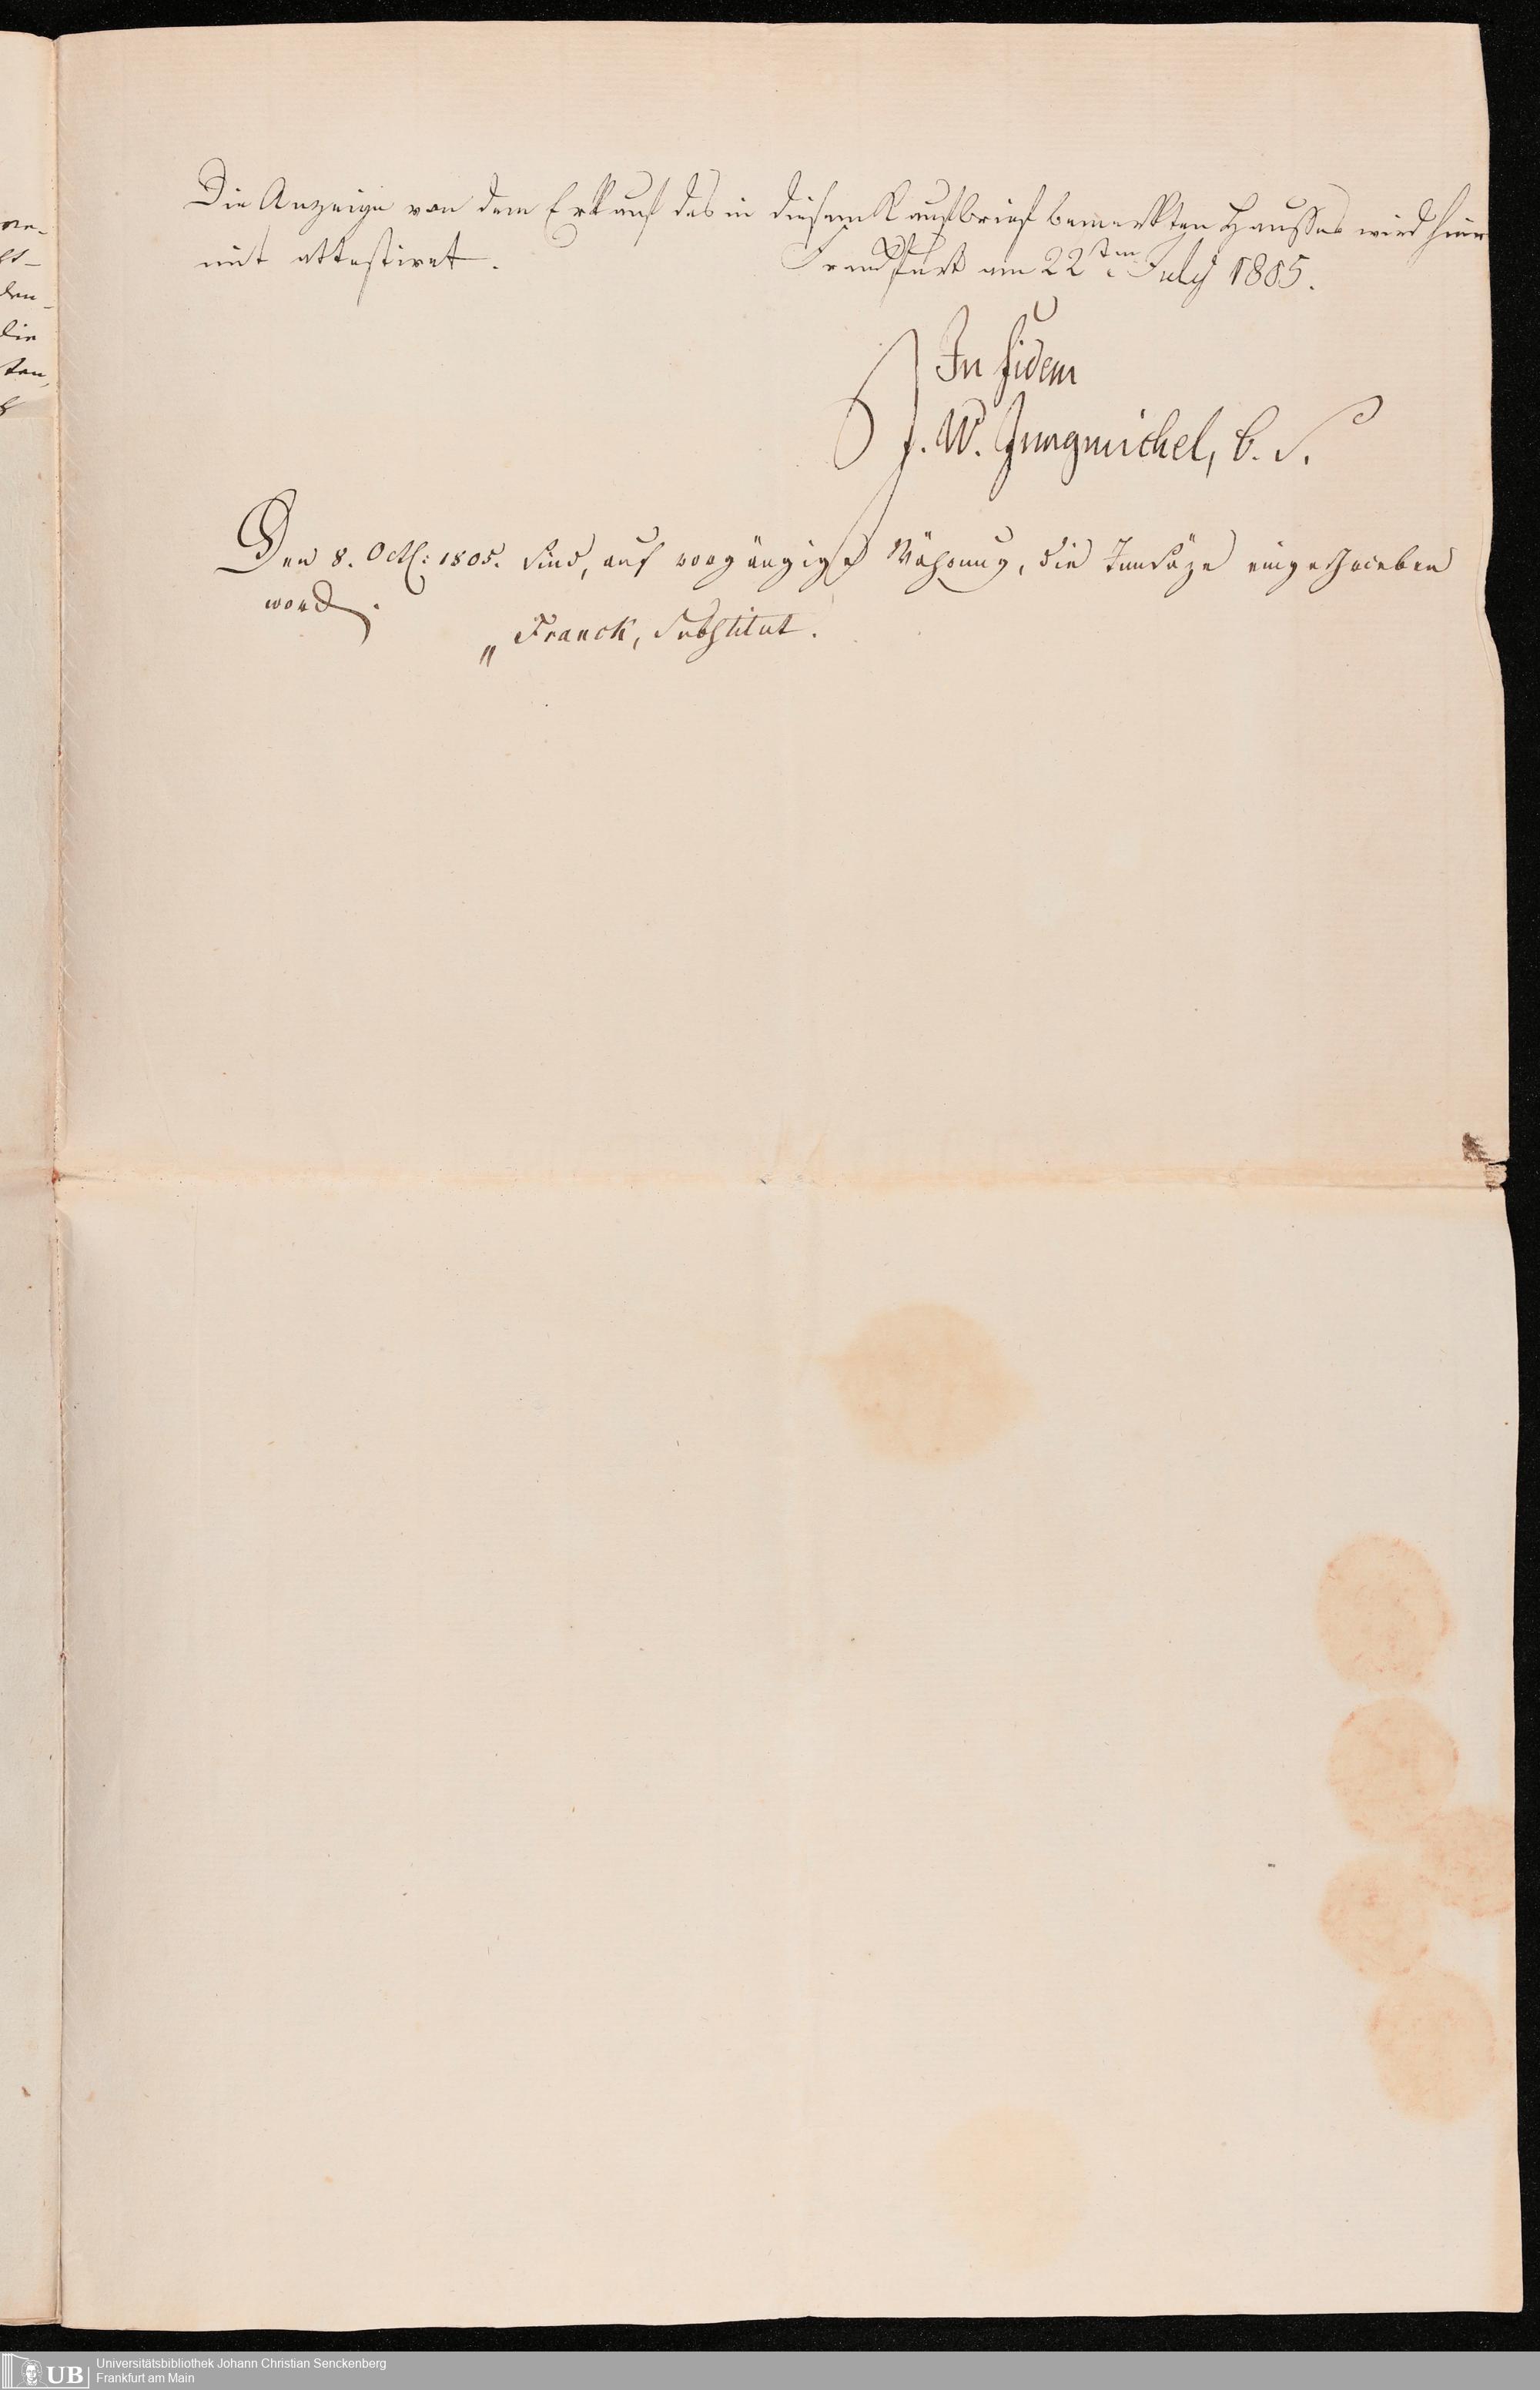 Die Anzeige von dem Erkauf des in diesem Kaufbrief bemerkten Hausses wird hier
mit attestiret.
Frankfurt am 22sten July 1805.
In fidem
J. W. Jungmichel, b. S.
Den 8. Octb: 1805. sind, auf vorgängige Währung, die Innsäze eingeschrieben
word.
„ Franck, Substitut.
UB
Universitätsbibliothek Johann Christian Senckenberg
Frankfurt am Main